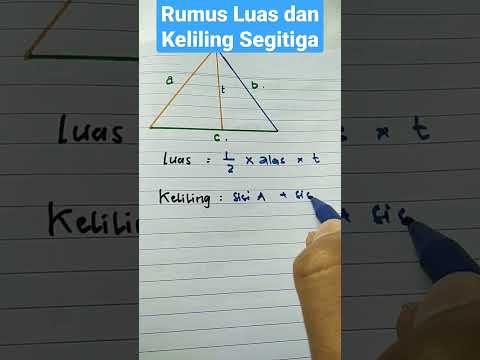 Rumus Luas dan
Keliling Segitiga
a
t
b.
c.
Luas
x t
Luas : 1/2 x alas x t
Keliling : sisi A + sis
Kelilin
sis